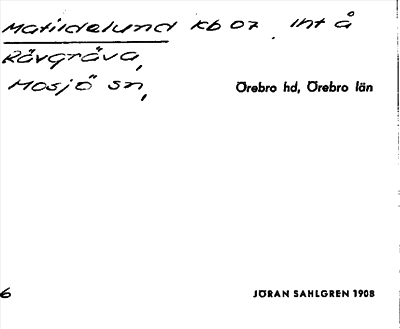 Matildelund kb 07. Int å
Rävgräva,
Mosjö sn,
Örebro hd, Örebro län
6
JÖRAN SAHLGREN 1908